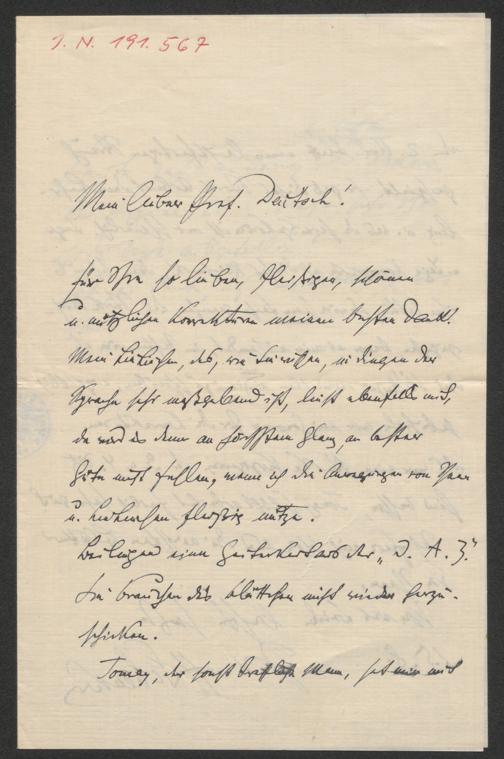 J. N. 191.567
Mein lieber Prof. Deutsch!
für Ihre so lieben, fleißigen, schönen
u. nützlichen Korrekturen meinen besten Dank!
Mein Lieschen, das, wie Sie wissen, in Dingen der
Sprache sehr maßgebend ist, liest ebenfalls mit,
da wird es denn an höchstem Glanz, an bester
Güte nicht fehlen, wenn ich die Anregungen von Ihnen
u. Lieschen fleißig nütze.
Beiliegend einen der „D. A. Z."
Sie brauchen das Blättchen nicht wieder herzu-
schicken.
der sonst Mann, hat mir mit